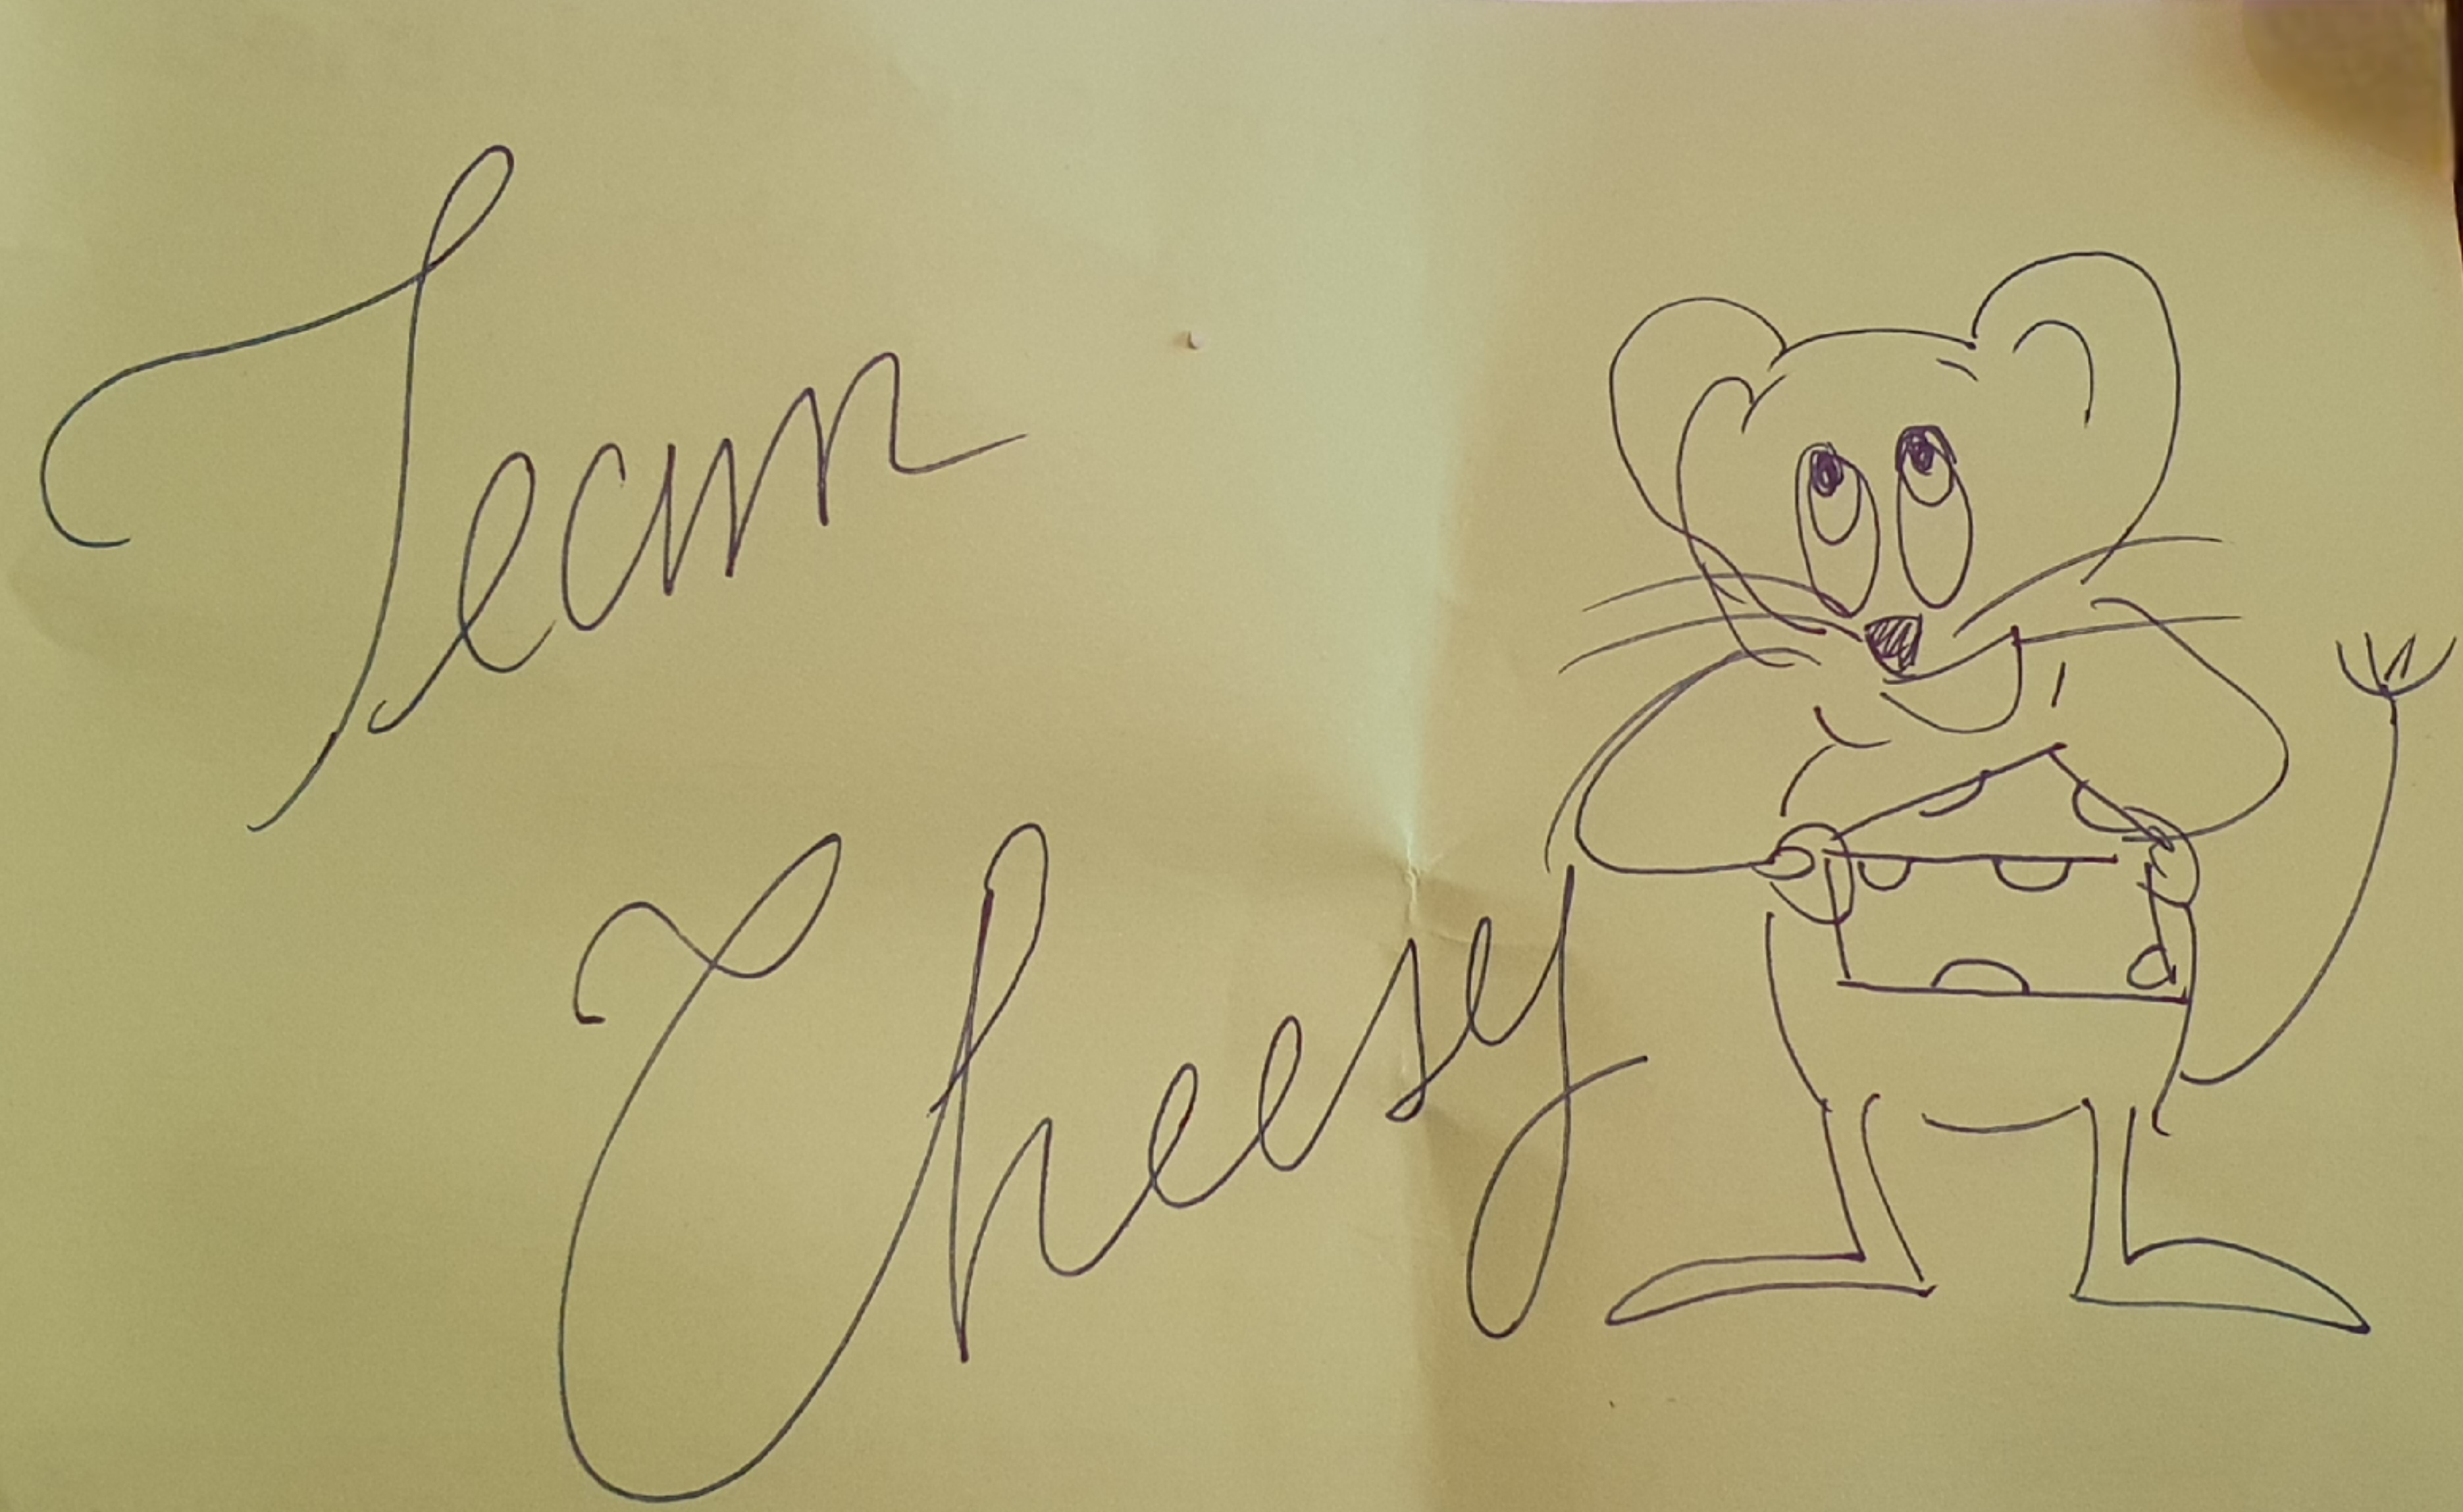 Team
Cheesy